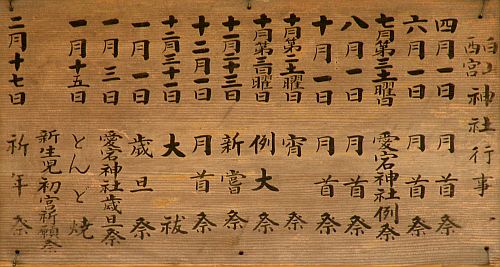 白山
西宮 神社行事
四月一日 月首祭
六月一日 月首祭
七月第三土曜日 愛宕神社例祭
八月一日 月首祭
十月一日 月首祭
十月第二土曜日 宵祭
十月第三日曜日 例大祭
十一月二十三日 新嘗祭
十二月一日 月首祭
十二月三十一日 大祓
一月一日 歳旦祭
一月三日 愛宕神社歳旦祭
一月十五日 とんど焼
新生児初宮祈願祭
二月十七日 祈年祭